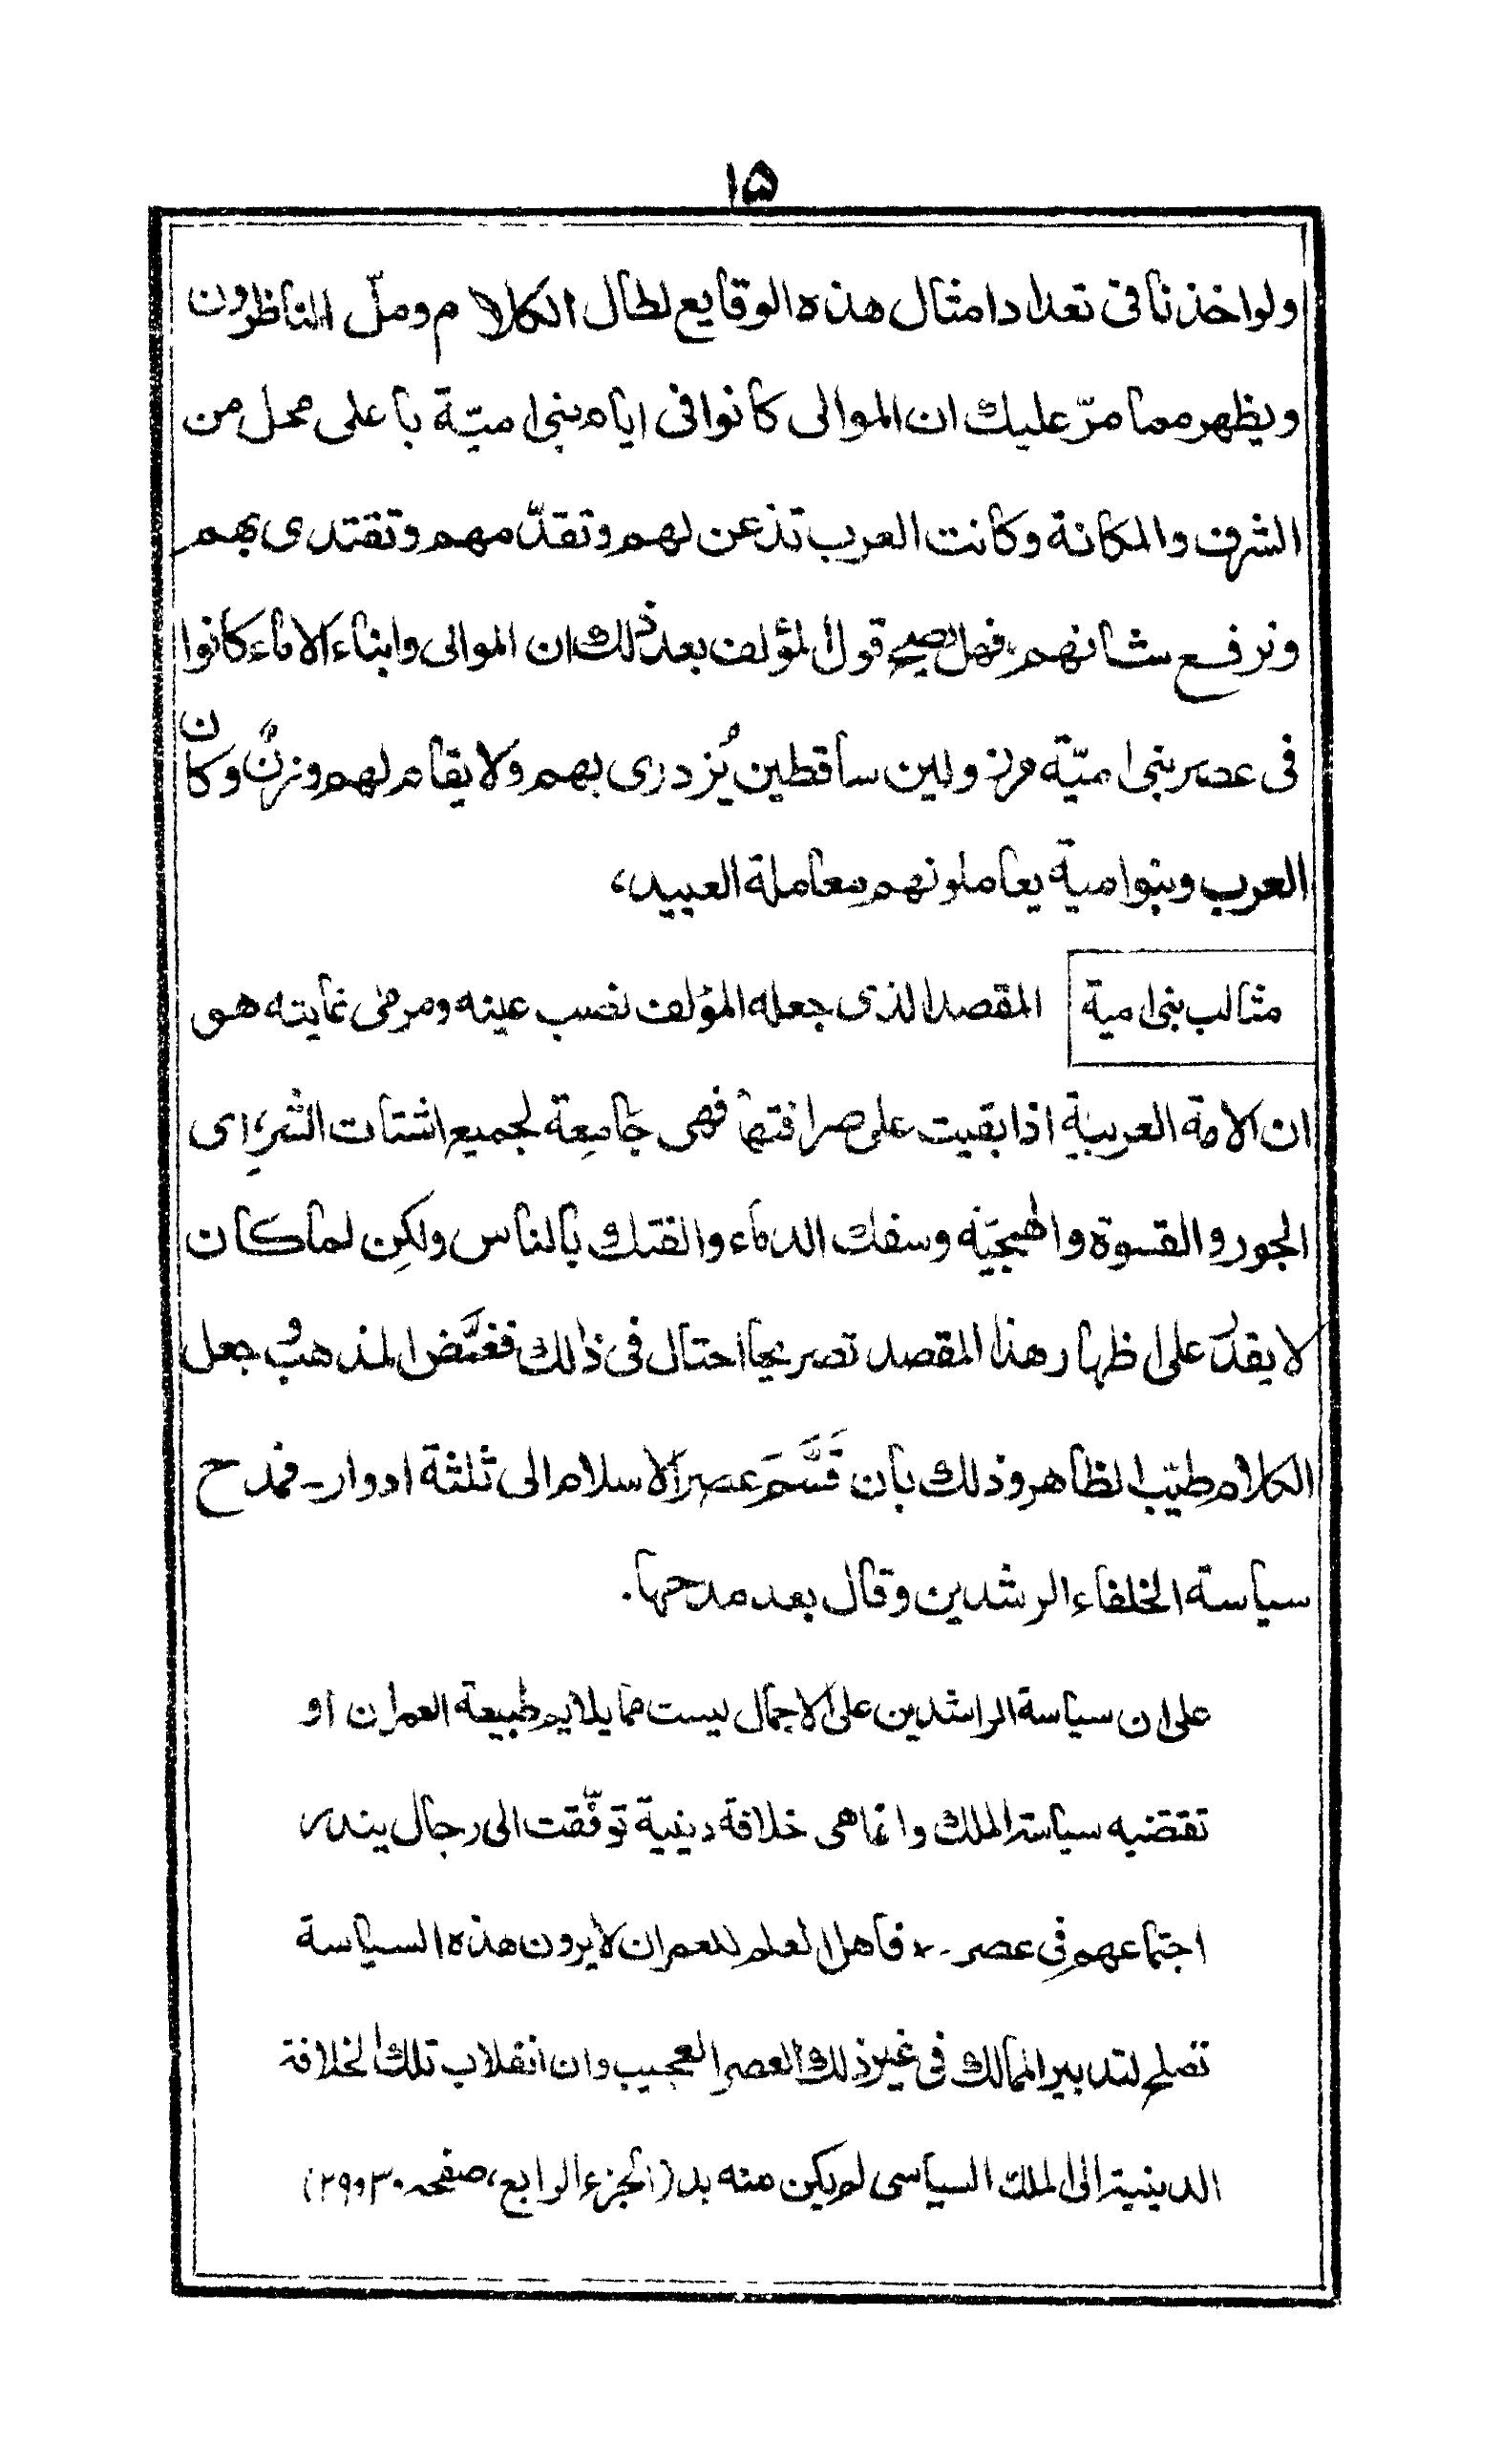 ۱۵
ولو اخذنا فی تعداد امثال هذه الوقایع لطال الکلام وملّ الناظرون
ویظهر مما مرّ علیك ان الموالی کانوا فی ایام بنی امیّة باعلی محل من
الشرف والمکانة وکانت العرب تذعن لهم وتقدّمهم وتقتدی بهم
وترفع شانهم، فهل یصح قول المؤلف بعد ذلك ان الموالی وابناء الاماء کانوا
فی عصر بنی امیّة مرذولین ساقطین یُزدری بهم ولا یقام لهم وزنٌ وکان
العرب وبنوا میة یعاملونهم معاملة العبید،
مثالب بنی امیة المقصد الذی جعله المؤلف نصب عینه ومرمی غایته هو
ان الامة العربیة اذا بقیت علی صرافتها فهی جامِعة لجمیع اشتات الشرِ، ای
الجور والقسوة والهمجیَة وسفك الدماء والفتك بالناس ولکِن لما کان
لا یقدُر علی اظهار هذا المقصد تصریحا احتال فی ذلك فغمَّض المذهبُ جعل
الکلام طیّب الظاهر وذلك بان قَسَّمَ عصر الاسلام الی ثلثة ادوار۔ فمدح
سیاسة الخلفاء الرشدین وقال بعد مدحها۔
علی ان سیاسة الراشدین علی الاجمال لیست مما یلایم طبیعة العمران او
تقتضیه سیاسة الملك وانما هی خلافة دینیة توفّقت الی رجال یندر
اجتماعهم فی عصر۔۔ فاهل العلم للعمران لا یرون هذه السیاسة
تصلح لتدبیر الممالك فی غیر ذلك العصر العجیب وان انقلاب تلك الخلافة
الدینیة الی الملك السیاسی لم یکن منه بد (الجزء الرابع، صفحه ۳۰ و ۲۹)